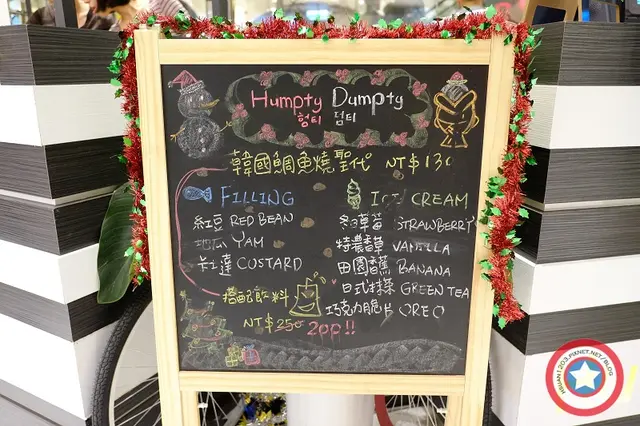 Humpty Dumpty
험티 덤티
韓國鯛魚燒聖代 NT$130
FILLING
紅豆 RED BEAN
地瓜 YAM
卡士達 CUSTARD
ICE CREAM
冬草莓 STRAWBERRY
特濃香草 VANILLA
田園香蕉 BANANA
日式抹茶 GREEN TEA
巧克力脆片 OREO
搭配飲料
NT$250 200!!
HSUAN1203.PIXNET.NET/BLOG